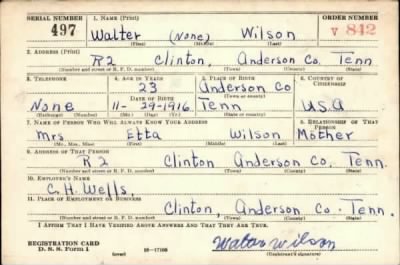 SERIAL NUMBER 1. NAME (Print) ORDER NUMBER
497 Walter (None) Wilson V 842
(First) (Middle) (Last)
2. ADDRESS (Print)
R2 Clinton, Anderson Co. Tenn
(Number and street or R. F. D. number) (Town) (County) (State)
3. TELEPHONE 4. AGE IN YEARS 5. PLACE OF BIRTH 6. COUNTRY OF CITIZENSHIP
23 Anderson Co
DATE OF BIRTH (Town or county)
None 11-29-1916 Tenn U.S.A
(Exchange) (Number) (Mo.) (Day) (Yr.) (State or country)
7. NAME OF PERSON WHO WILL ALWAYS KNOW YOUR ADDRESS 8. RELATIONSHIP OF THAT PERSON
Mrs Etta Wilson Mother
(Mr., Mrs., Miss) (First) (Middle) (Last)
9. ADDRESS OF THAT PERSON
R2 Clinton Anderson Co. Tenn.
(Number and street or R. F. D. number) (Town) (County) (State)
10. EMPLOYER'S NAME
C. H. Wells,
11. PLACE OF EMPLOYMENT OR BUSINESS
Clinton, Anderson Co. Tenn.
(Number and street or R. F. D. number) (Town) (County) (State)
I AFFIRM THAT I HAVE VERIFIED ABOVE ANSWERS AND THAT THEY ARE TRUE.
REGISTRATION CARD
D. S. S. Form 1 (over) Walter Wilson
(Registrant's signature)